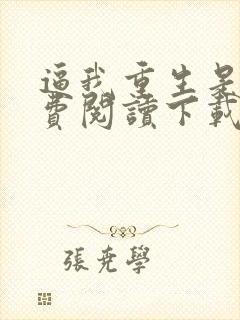 逼我重生是
費閱讀下載
張堯學